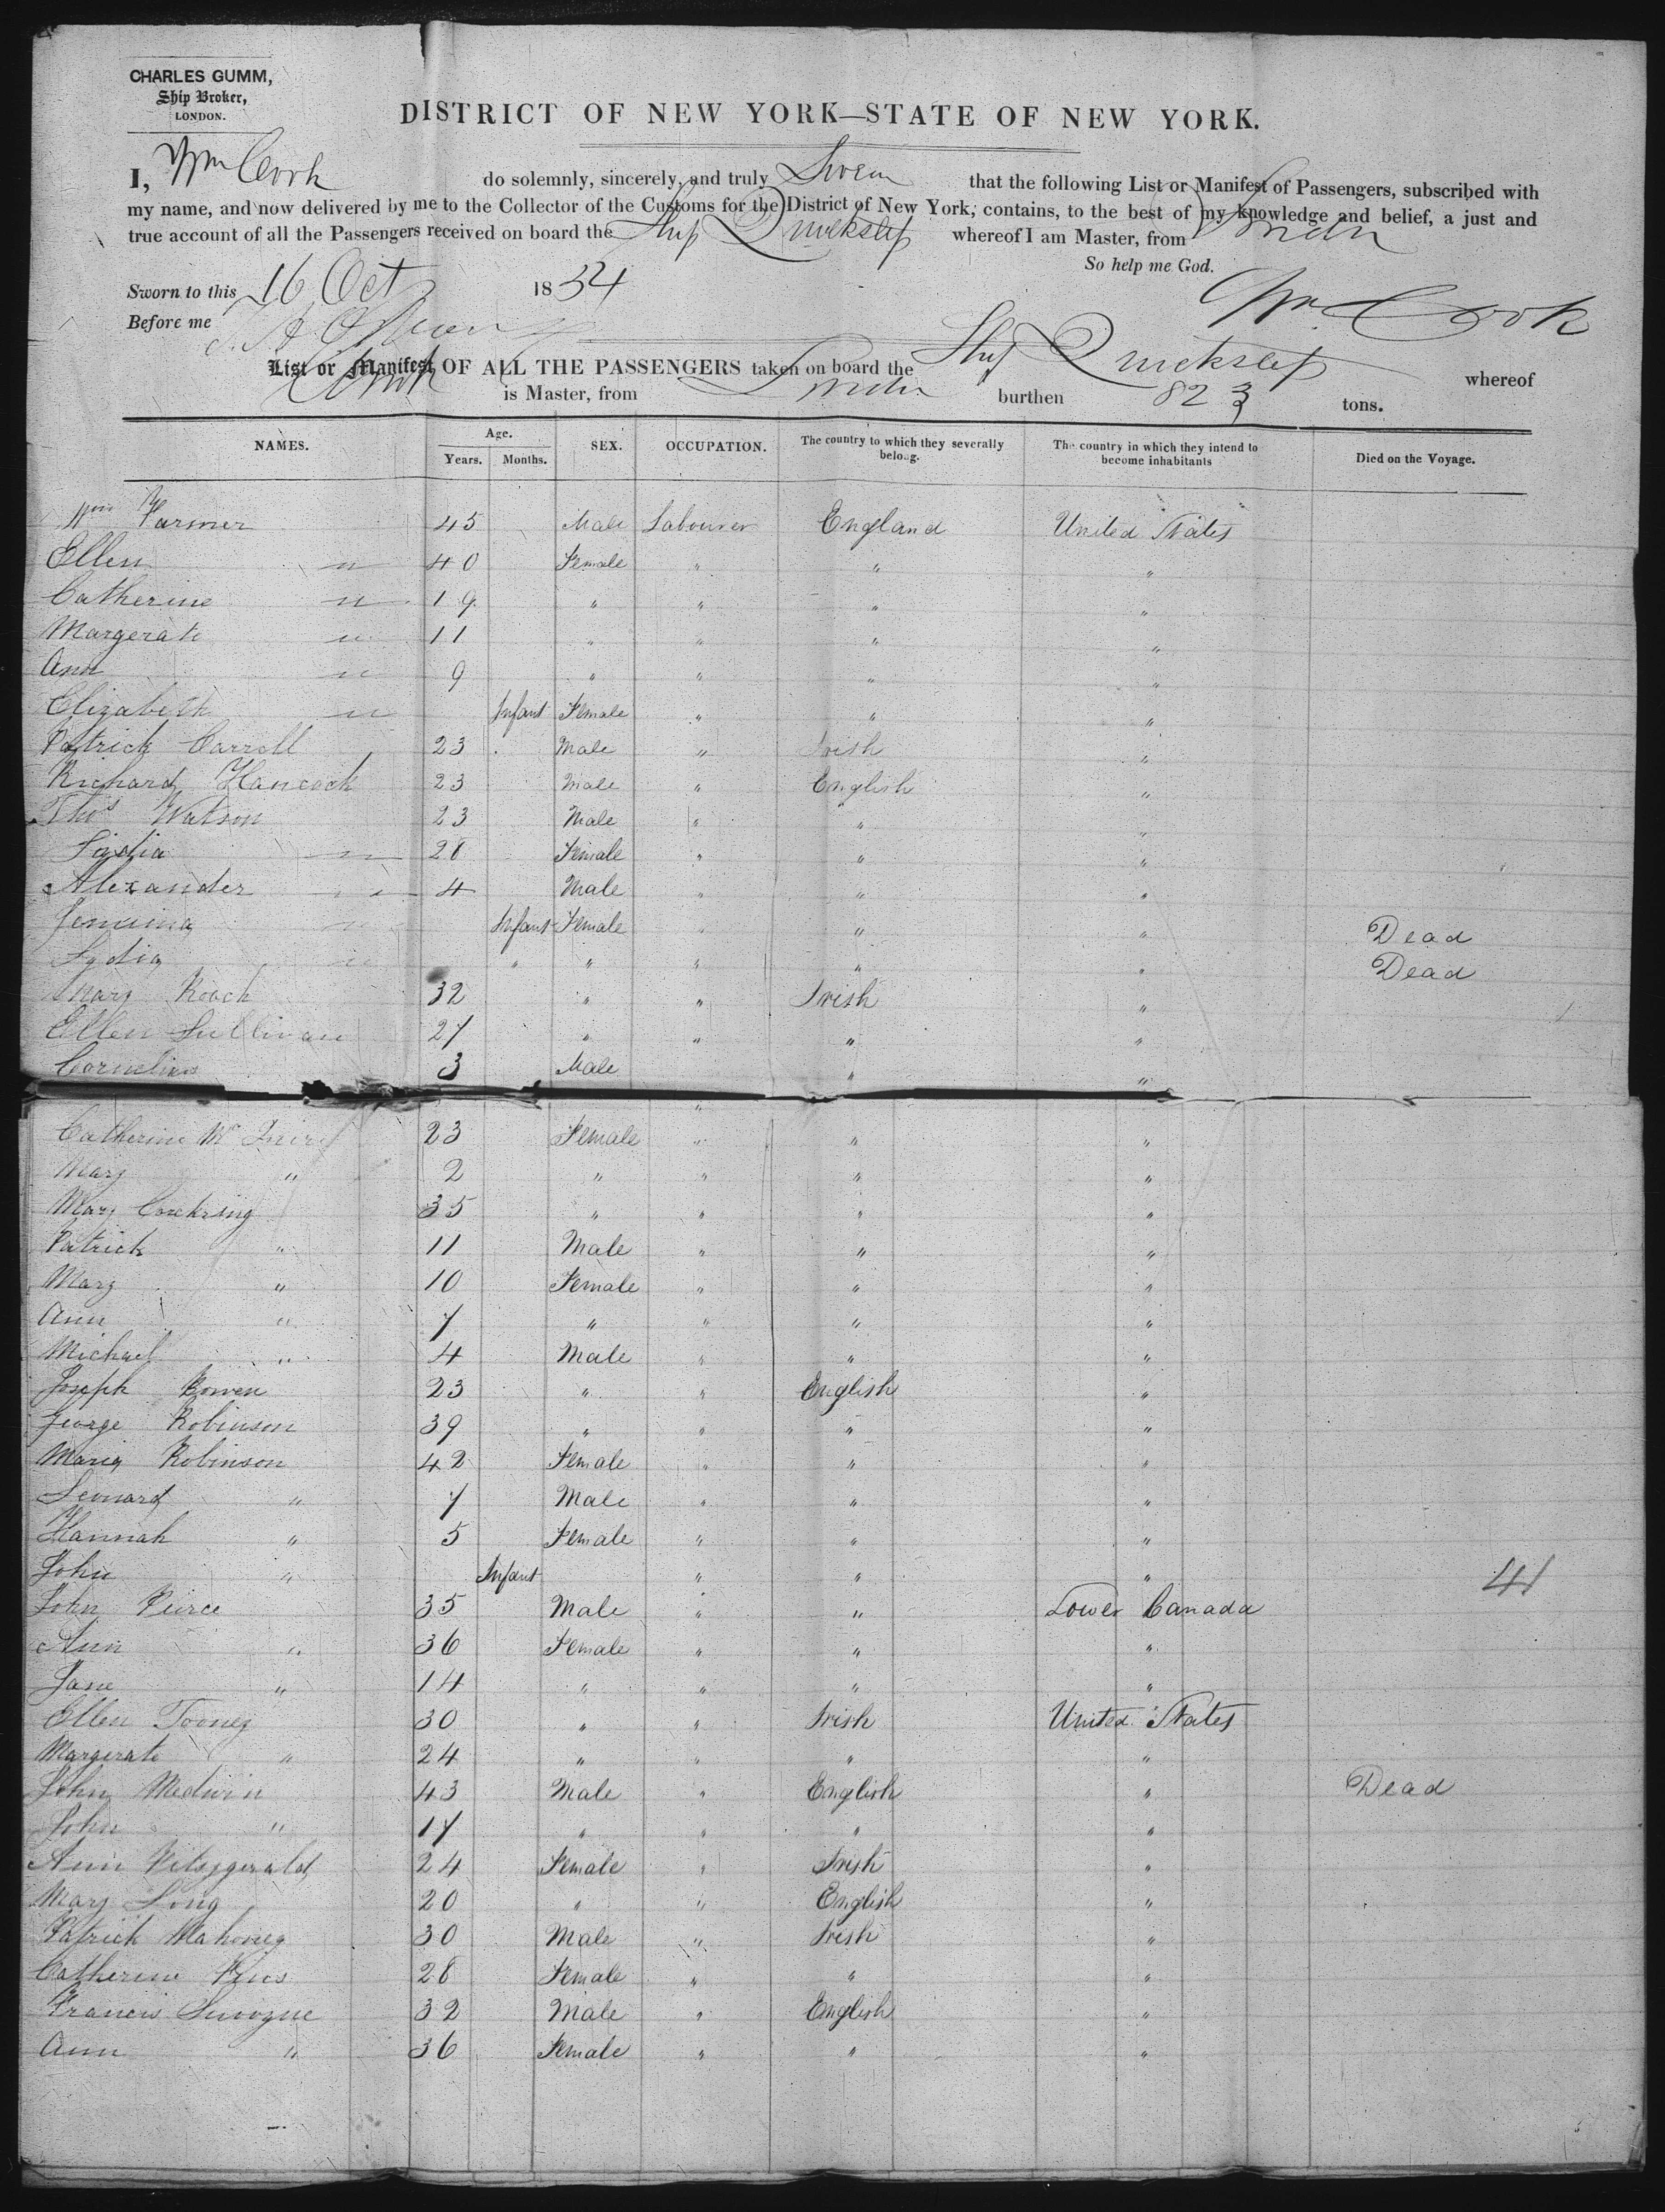 CHARLES GUMM,
Ship Broker,
LONDON.
DISTRICT OF NEW YORK—STATE OF NEW YORK.
I, Wm Cook do solemnly, sincerely, and truly Swear that the following List or Manifest of Passengers, subscribed with
my name, and now delivered by me to the Collector of the Customs for the District of New York, contains, to the best of my knowledge and belief, a just and
true account of all the Passengers received on board the Ship Quickstep whereof I am Master, from London
So help me God.
Sworn to this 16 Oct 1854
Wm Cook
Before me
List or Manifest OF ALL THE PASSENGERS taken on board the Ship Quickstep whereof
Cook is Master, from London burthen 823 tons.
NAMES. Age. Years. Months. SEX. OCCUPATION. The country to which they severally belong. The country in which they intend to become inhabitants Died on the Voyage.
Wm Farmer 45 Male Labourer England United States
Ellen " 40 Female " " "
Catherine " 19 " " " "
Margerate " 11 " " " "
Ann " 9 " " " "
Elizabeth " Infant Female " " "
Patrick Carroll 23 Male " Irish "
Richard Hancock 23 Male " English "
Thos Watson 23 Male " " "
Lidia " 28 Female " " "
Alexander " 4 Male " " "
Jemima " Infant Female " " " Dead
Lydia " " " " " " Dead
Mary Roach 32 " " Irish "
Ellen Sullivan 27 " " " "
Cornelius 3 Male " " "
Catherine Mc 23 Female " " "
Mary " 2 " " " "
Mary Cockring 35 " " " "
Patrick " 11 Male " " "
Mary " 10 Female " " "
Ann " 7 " " " "
Michael " 4 Male " " "
Joseph Bowen 23 " " English "
George Robinson 39 " " " "
Maria Robinson 42 Female " " "
Leonard " 7 Male " " "
Hannah " 5 Female " " "
John " Infant " " "
41
John Peirce 35 Male " " Lower Canada
Ann " 36 Female " " "
Jane " 14 " " " "
Ellen Tooney 30 " " Irish United States
Margerate " 24 " " " "
John Medwin 43 Male " English " Dead
John " 17 " " " "
Ann Fitszgerald 24 Female " Irish "
Mary Long 20 " " English "
Patrick Mahoney 30 Male " Irish "
Catherine 28 Female " " "
Francis 32 Male " English "
Ann " 36 Female " " "